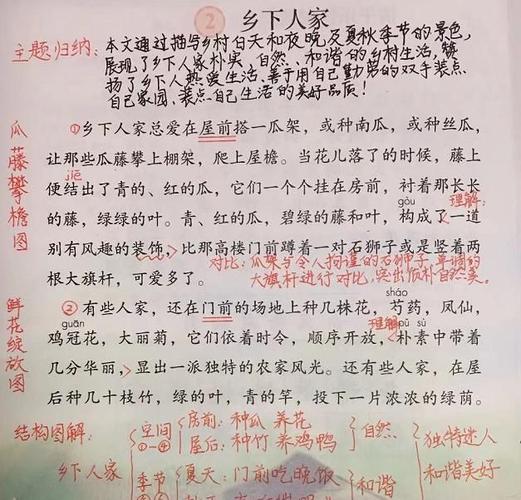 2 乡下人家
主题归纳：本文通过描写乡村白天和夜晚及夏秋季节的景色，
展现了乡下人家朴实、自然、和谐的乡村生活，赞
扬了乡下人热爱生活、善于用自己勤劳的双手装点
自己家园、装点自己生活的美好品质！
瓜藤攀檐图
①乡下人家总爱在屋前搭一瓜架，或种南瓜，或种丝瓜，
让那些瓜藤攀上棚架，爬上屋檐。当花儿落了的时候，藤上
jiē
便结出了青的、红的瓜，它们一个个挂在房前，衬着那长长
gòu 理解：
的藤，绿绿的叶。青、红的瓜，碧绿的藤和叶，构成了一道
别有风趣的装饰，比那高楼门前蹲着一对石狮子或是竖着两
对比：瓜架与令人拘谨的石狮子、单调的
根大旗杆，可爱多了。
大旗杆进行对比，突出质朴自然美。
鲜花绽放图
sháo
②有些人家，还在门前的场地上种几株花，芍药，凤仙，
guān 理解 pǔ sù
鸡冠花，大丽菊，它们依着时令，顺序开放，朴素中带着
几分华丽，显出一派独特的农家风光。还有些人家，在屋
后种几十枝竹，绿的叶，青的竿，投下一片浓浓的绿荫。
结构图解：
乡下人家
空间 ①-④
房前：种瓜 养花
屋后：种竹 养鸡鸭
自然
独特迷人
和谐美好
季节
夏天：门前吃晚饭
和谐